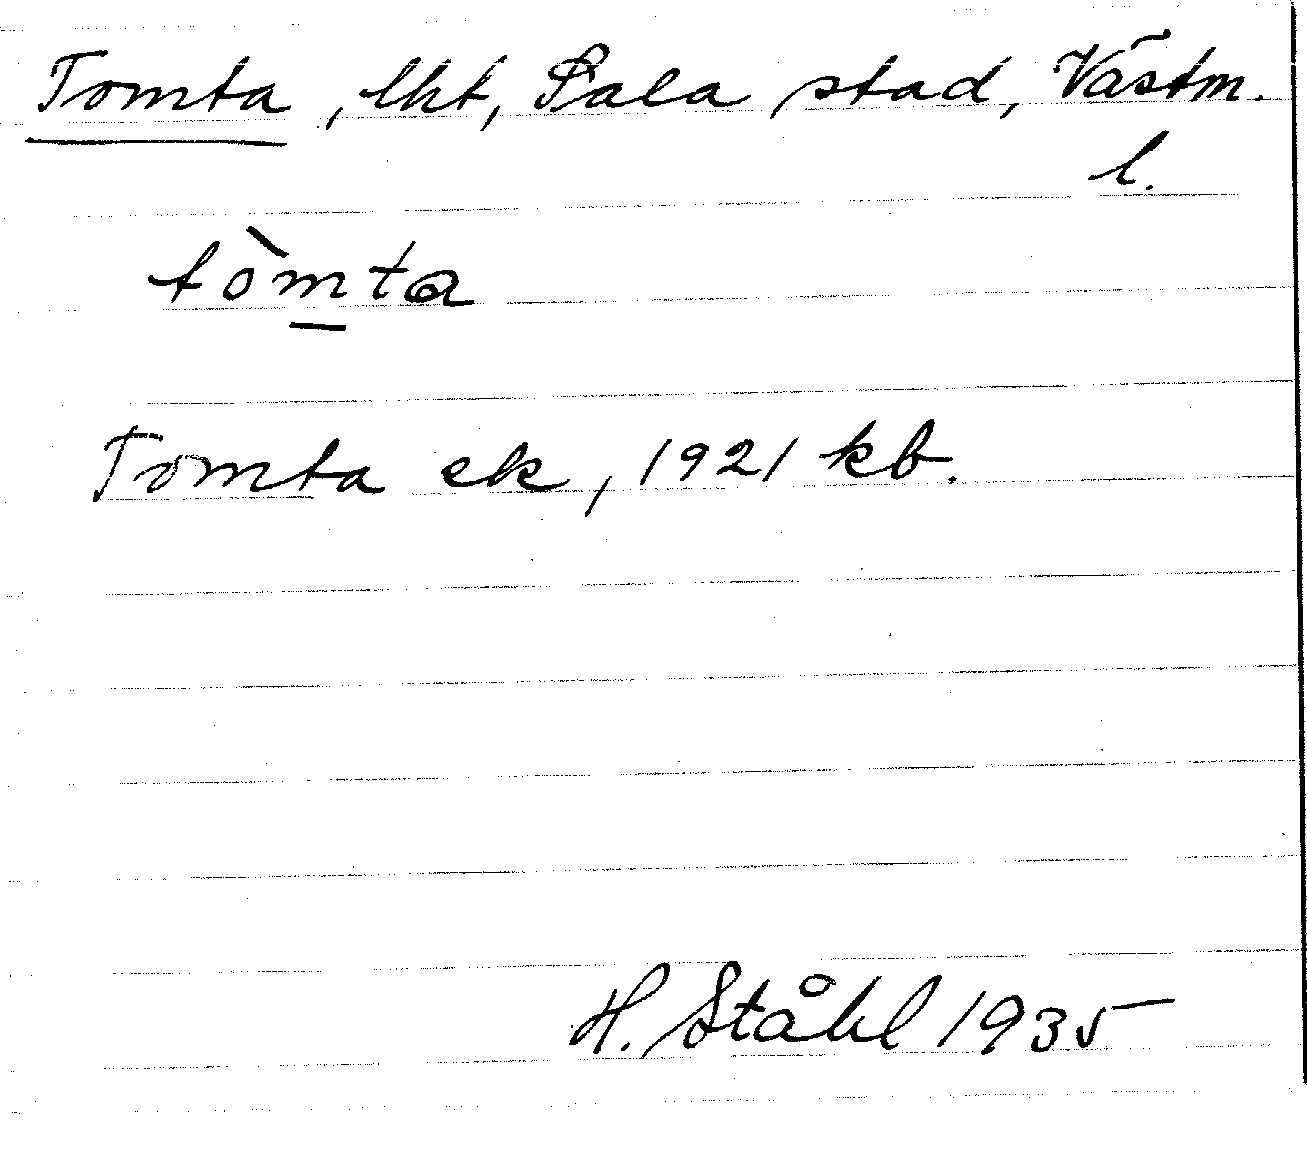 Tomta, lht, Sala stad, Västm.
l.
tòmta
Tomta ek, 1921 kb.
H. Ståhl 1935